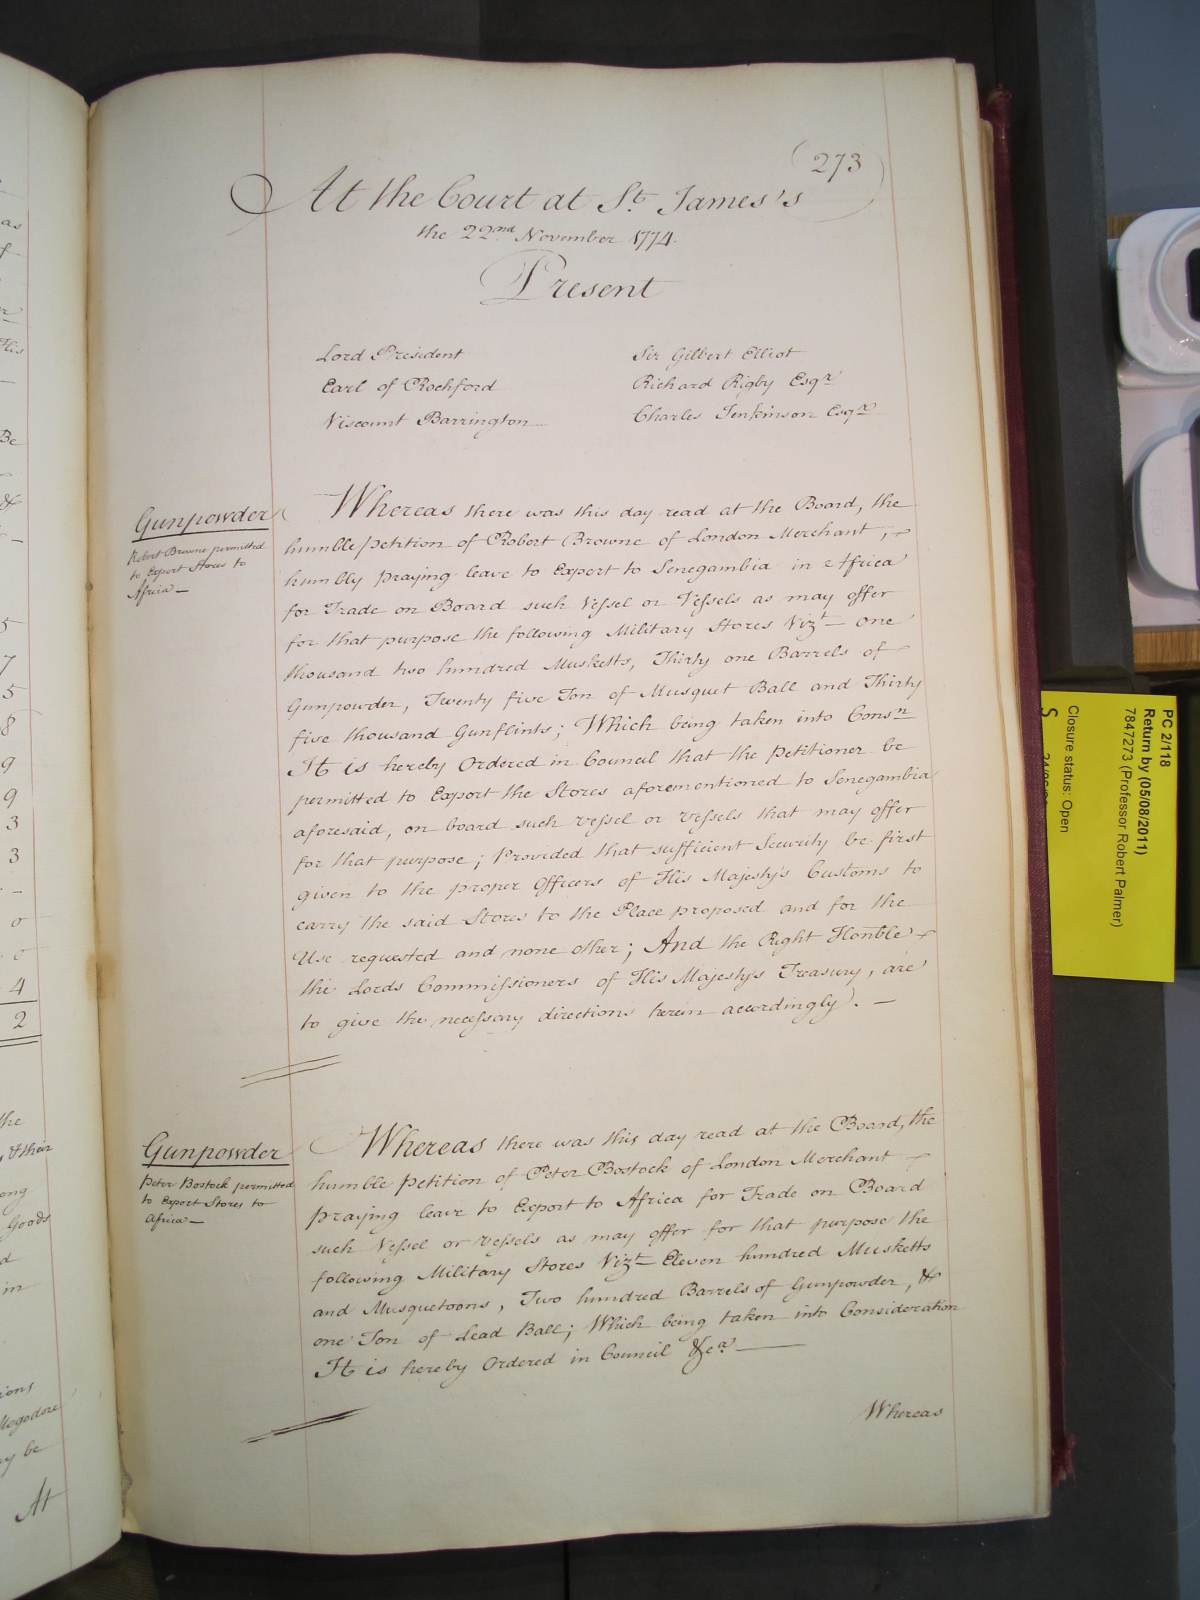 273
At the Court at St. James's
the 22nd November 1774.
Present
Lord President
Earl of Rochford
Viscount Barrington
Sir Gilbert Elliot
Richard Rigby Esqr
Charles Jenkinson Esqr
Gunpowder
Robert Browne permitted
to Export Stores to
Africa —
Whereas there was this day read at the Board, the
humble petition of Robert Browne of London Merchant,
humbly praying leave to Export to Senegambia in Africa
for Trade on Board such Vessel or Vessels as may offer
for that purpose the following Military Stores Vizt — one
thousand two hundred Musketts, Thirty one Barrels of
Gunpowder, Twenty five Ton of Musquet Ball and Thirty
five thousand Gunflints; Which being taken into Consn
It is hereby Ordered in Council that the Petitioner be
permitted to Export the Stores aforementioned to Senegambia
aforesaid, on board such vessel or vessels that may offer
for that purpose; Provided that sufficient Security be first
given to the proper Officers of His Majesty's Customs to
carry the said Stores to the Place proposed and for the
Use requested and none other; And the Right Honble
the Lords Commissioners of His Majesty's Treasury, are
to give the necessary directions herein accordingly). —
Gunpowder
Peter Bostock permitted
to Export Stores to
Africa —
Whereas there was this day read at the Board, the
humble Petition of Peter Bostock of London Merchant
praying leave to Export to Africa for Trade on Board
such Vessel or vessels as may offer for that purpose the
following Military Stores Vizt Eleven hundred Musketts
and Musquetoons, Two hundred Barrels of Gunpowder, &
one Ton of Lead Ball; Which being taken into Consideration
It is hereby Ordered in Council &ca. —
Whereas
as
His
Be
&
5
7
5
8
9
9
3
3
0
0
4
2
the
& their
ong
Goods
d
in
ions
Mogodore
ay be
At
PC 2/118
Return by (05/08/2011)
7847273 (Professor Robert Palmer)
Closure status: Open
S